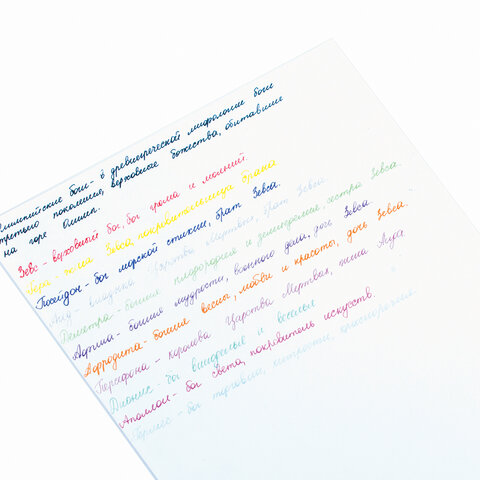 Олимпийские боги - в древнегреческой мифологии боги
третьего поколения, верховные божества, обитавшие
на горе Олимп.
Зевс - верховный бог, бог грома и молний.
Гера - жена Зевса, покровительница брака.
Посейдон - бог морской стихии, брат Зевса.
Аид - владыка Царства Мёртвых, брат Зевса.
Деметра - богиня плодородия и земледелия, сестра Зевса.
Афина - богиня мудрости, военного дела, дочь Зевса.
Афродита - богиня весны, любви и красоты, дочь Зевса.
Персефона - королева Царства Мёртвых, жена Аида.
Дионис - бог виноделия и веселья.
Аполлон - бог света, покровитель искусств.
Гермес - бог торговли, хитрости,